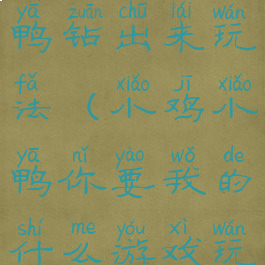 yā zuān chū lái wán
鸭钻出来玩
fǎ xiǎo jī xiǎo
法(小鸡小
yā nǐ yào wǒ de
鸭你要我的
shí me yóu xì wán
什么游戏玩